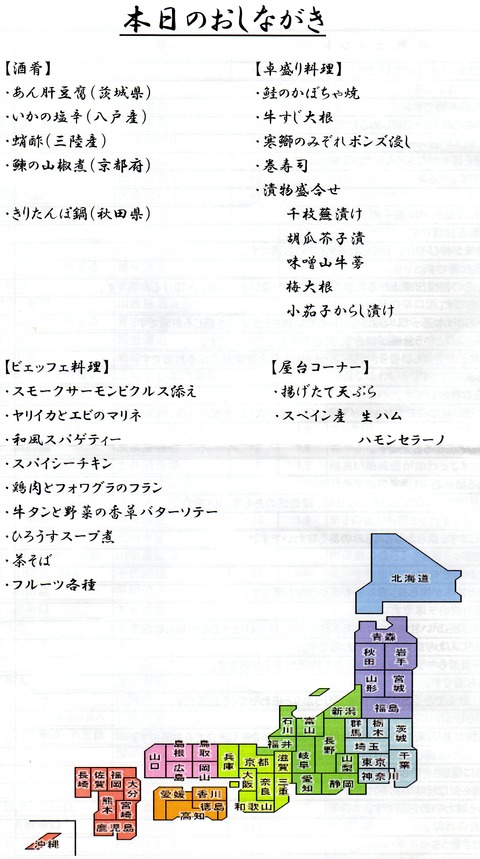 本日のおしながき
【酒肴】
・あん肝豆腐(茨城県)
・いかの塩辛(八戸産)
・蛸酢(三陸産)
・鰊の山椒煮(京都府)
・きりたんぽ鍋(秋田県)
【卓盛り料理】
・鮭のかぼちゃ焼
・牛すじ大根
・寒鰤のみぞれポンズ浸し
・巻寿司
・漬物盛合せ
千枚蕪漬け
胡瓜芥子漬
味噌山牛蒡
梅大根
小茄子からし漬け
【ビェッフェ料理】
・スモークサーモンピクルス添え
・ヤリイカとエビのマリネ
・和風スパゲティー
・スパイシーチキン
・鶏肉とフォワグラのフラン
・牛タンと野菜の香草バターソテー
・ひろうすスープ煮
・茶そば
・フルーツ各種
【屋台コーナー】
・揚げたて天ぷら
・スペイン産 生ハム
ハモンセラーノ
北海道
青森
秋田 岩手
山形 宮城
福島
新潟
群馬 栃木 茨城
石川 富山 長野 埼玉 千葉
福井 岐阜 山梨 東京
神奈川
愛知 静岡
島根 鳥取 兵庫 京都 滋賀
山口 広島 岡山 大阪 奈良 三重
和歌山
愛媛 香川
徳島
高知
長崎 佐賀 福岡 大分
熊本 宮崎
鹿児島
沖縄